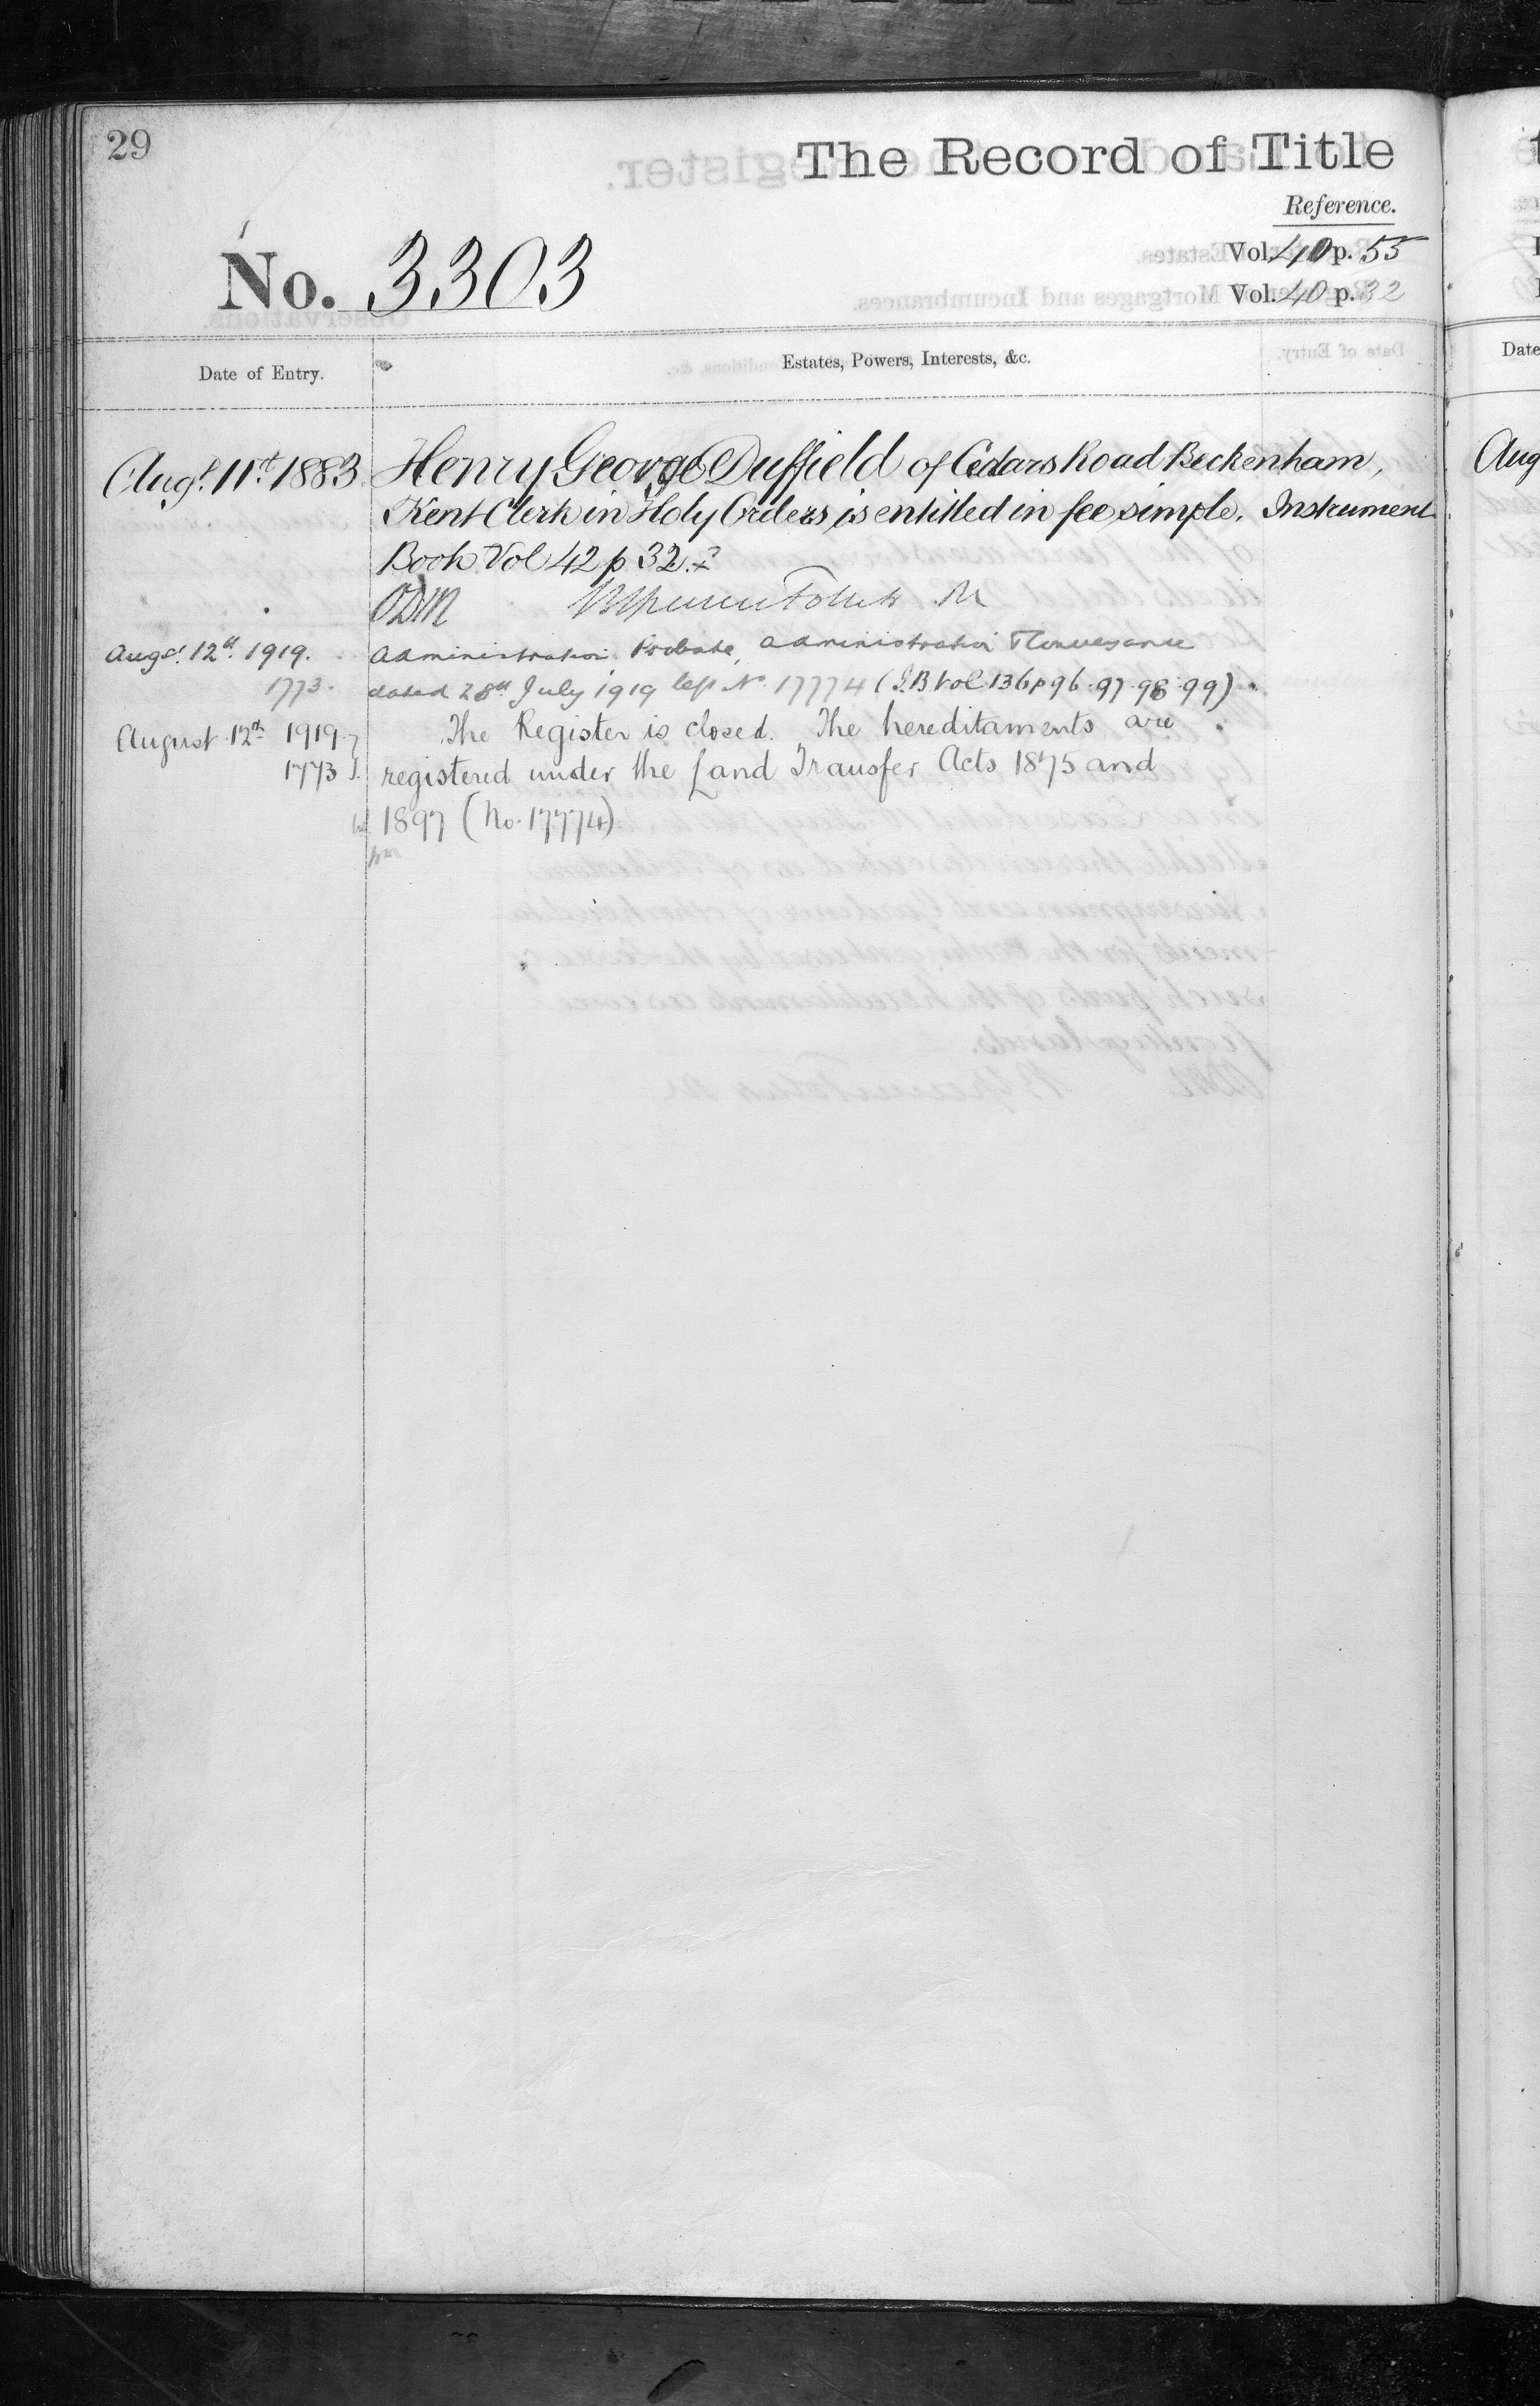 29
The Record of Title
Reference.
No. 3303
Vol. 40 p. 55
Vol. 40 p. 32
Date of Entry.
Estates, Powers, Interests, &c.
Augt. 11th 1883 Henry George Duffield of Cedars Road Beckenham,
Kent Clerk in Holy Orders is entitled in fee simple. Instrument
Book Vol 42 p 32.
ODM
Augst. 12th 1919. Administration, Probate, Administration & Conveyance
1773. dated 28th July 1919 left No. 17774 (I.B Vol 136 p 96. 97. 98. 99).
August 12th 1919 The Register is closed. The hereditaments are
1773 registered under the Land Transfer Acts 1875 and
1897 (No. 17774)
Date
Aug